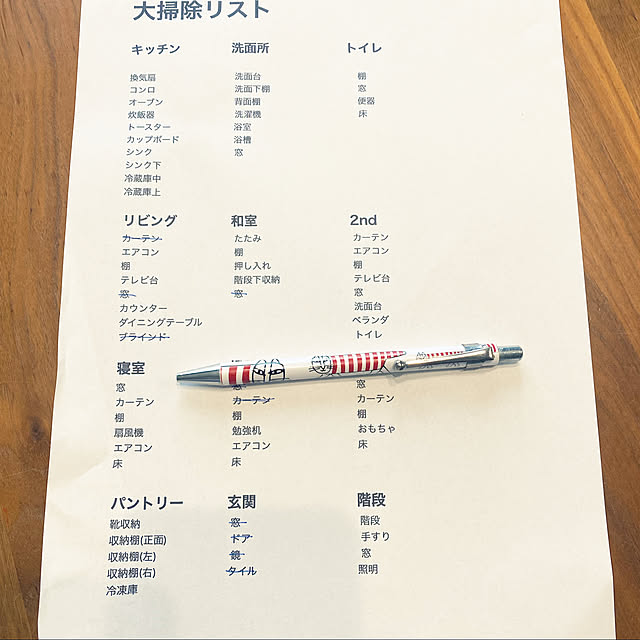 大掃除リスト
キッチン
換気扇
コンロ
オーブン
炊飯器
トースター
カップボード
シンク
シンク下
冷蔵庫中
冷蔵庫上
洗面所
洗面台
洗面下棚
背面棚
洗濯機
浴室
浴槽
窓
トイレ
棚
窓
便器
床
リビング
カーテン
エアコン
棚
テレビ台
窓
カウンター
ダイニングテーブル
ブラインド
和室
たたみ
棚
押し入れ
階段下収納
窓
2nd
カーテン
エアコン
棚
テレビ台
窓
洗面台
ベランダ
トイレ
寝室
窓
カーテン
棚
扇風機
エアコン
床
窓
カーテン
棚
勉強机
エアコン
床
窓
カーテン
棚
おもちゃ
床
パントリー
靴収納
収納棚(正面)
収納棚(左)
収納棚(右)
冷凍庫
玄関
窓
ドア
鏡
タイル
階段
階段
手すり
窓
照明